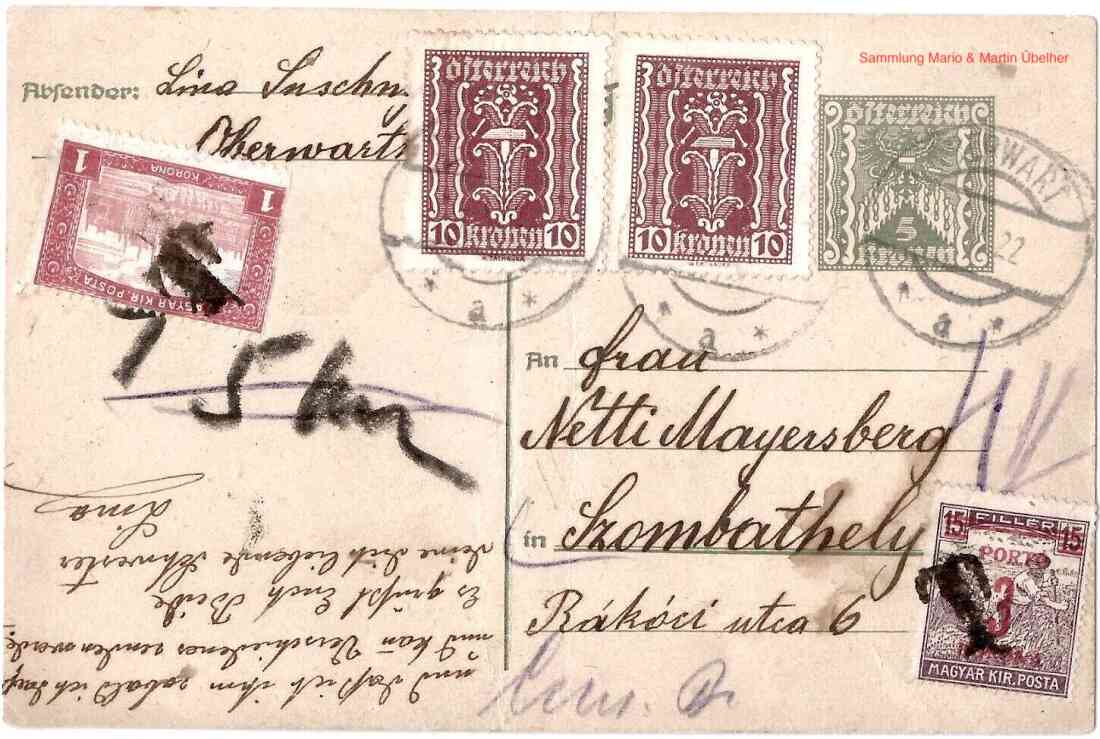 Sammlung Mario & Martin Übelher
Absender: Lina Suschn
Oberwart
Österreich
10 Kronen 10
Österreich
10 Kronen 10
Österreich
5
Kronen
WART
22
a
a
a
1 KORONA 1
MAGYAR KIR. POSTA
5
An Frau
Netti Mayersberg
in Szombathely
Rákóci utca 6
15 FILLER 15
PORTO
3
MAGYAR KIR. POSTA
und daß ich ihm sobald ich
und kan Verschiedenes senden werde.
Es grüßt Euch Beide
deine dich liebende Schwester
Lina